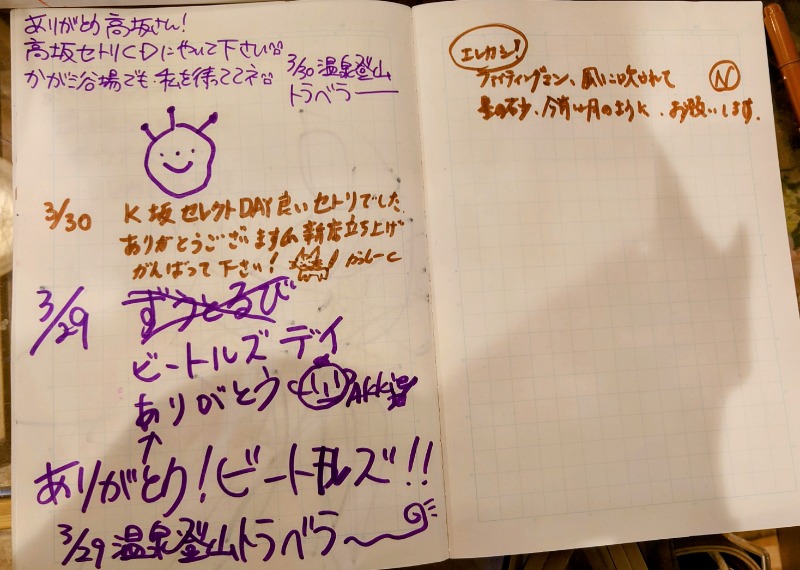 ありがとう高坂さん!
高坂セトリCDにやいて下さい
かがり浴場でも私を待っててネ
3/30 温泉登山
トラベラー
3/30
K坂セレクトDAY良いセトリでした
ありがとうございます 新店立ち上げ
がんばって下さい!
3/29
ずうとるび
ビートルズ デイ
ありがとう
AKKi
ありがとう!ビートルズ!!
3/29 温泉登山トラベラ〜
エレカシ!
N
ファイティングマン、風に吹かれて
星の砂、今宵の月のように、お願いします。